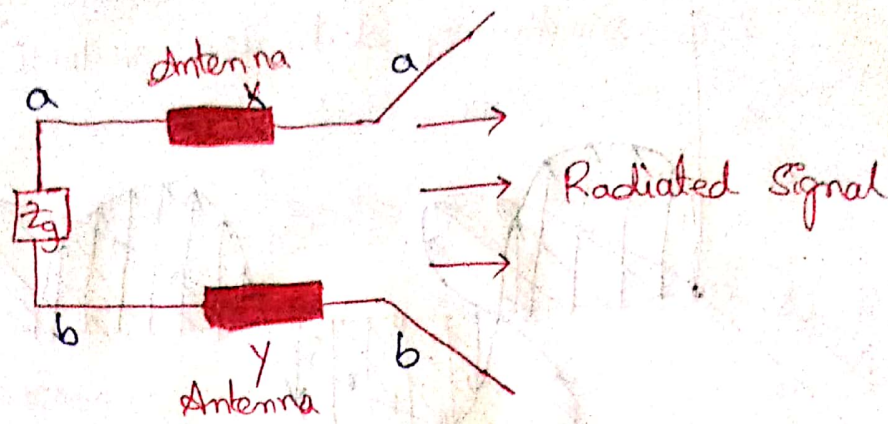 Antenna
X
a
a
Zg
Radiated Signal
b
b
Y
Antenna